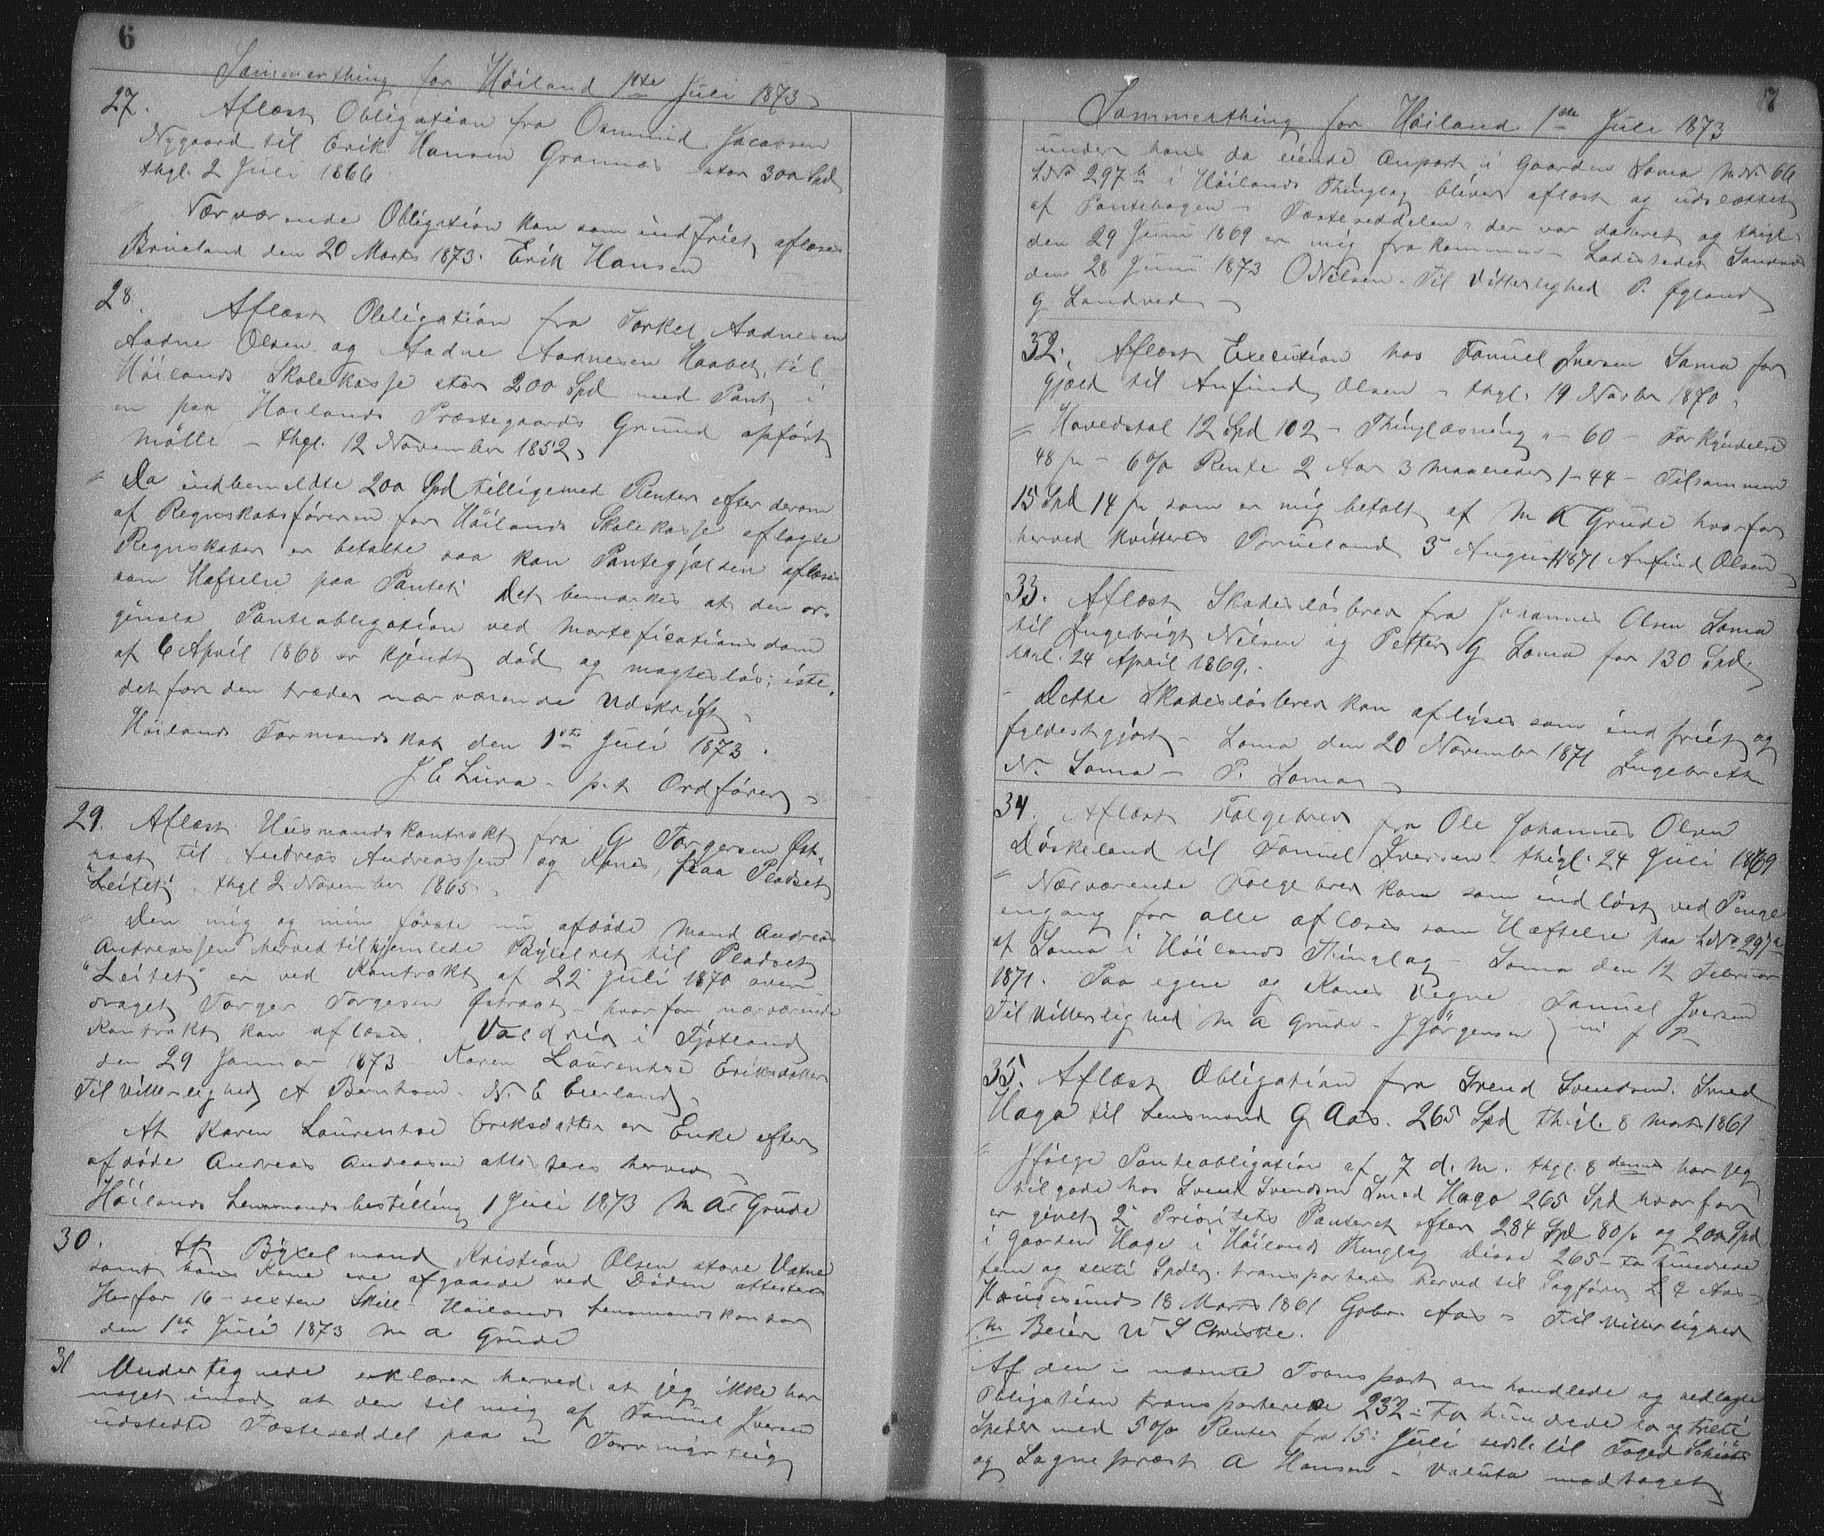 6
Sommerthing for Höiland 1ste Juli 1873
27. Aflæst Obligation fra Osmund Jacobsen
Nygaard til Erik Hansen Grannæs stor 300 Spd
thgl. 2 Juli 1866
Nærværende Obligation kan som indfriet aflæses
Brueland den 20 Marts 1873. Erik Hansen
28. Aflæst Obligation fra Torkel Aadnesen
Aadne Olsen og Aadne Aadnesen Haabet, til
Höilands Skolekasse stor 200 Spd med Pant i
en paa Höilands Præstegaards Grund opfört
Mölle – thgl. 12 November 1852,
Da indbemeldte 200 Spd tilligemed Renter efter de som
af Regnskabsföreren for Höilands Skolekasse aflagte
Regnskaber er betalte saa kan Pantegjælden aflæses
som Hæftelse paa Pantet. Det bemærkes at den ori-
ginale Panteobligation ved Mortificationsdom
af 6 April 1868 er kjendt död og magteslös; iste-
detfor den træder nærværende Udskrift.
Höilands Formandskab den 1ste Juli 1873.
J E Lura – p.t. Ordförer
29. Aflæst Husmandskontrakt fra G Torgersen Öst-
raat til Andreas Andreassen og Kone, paa Pladset
"Leitet". thgl 2 November 1865.
Den mig og min förste nu afdöde Mand Andreas
Andreassen herved tilhjemlede Bygselret til Pladset
"Leitet" er ved Kontrakt af 22 Juli 1870 over
draget Torger Torgesen Östraat – hvorfor nærværende
Kontrakt kan aflæses. i Fjotland
den 29 Januar 1873 Karen Laurentse Eriksdatter
Til Vitterlighed A N. E Eieland
At Karen Laurentse Eriksdatter er Enke efter
afdöde Andreas Andreasen attesteres herved
Höilands Lensmandsbestilling 1 Juli 1873 M A Grude
30. At Bÿxelmand Kristian Olsen store Vatne
samt hans Kone ere afgaaede ved Döden attesteres
Herfor 16 – sexten Skill – Höilands Lensmandskontor
den 1ste Juli 1873 M A Grude
31 Undertegnede erklærer herved at jeg ikke har
noget imod at den til mig af Tønnes Iversen
udstedte Fæsteseddel paa en Torvmyrteig
7
Sommerthing for Höiland 1ste Juli 1873
under hans da eiende Anpart i Gaarden Soma M.No 66
LNo 297b i Höilands Thinglag bliver aflæst og udslettet
af Pantebogen – Fæsteseddelen, der var dateret og thgl.
den 29 Juni 1869 er mig frakommen – Ladestedet Sandnæs
den 28 Juni 1873 O Nilsen. Til Vitterlighed P.
G Sandved
32. Aflæst Execution hos Iversen Soma for
Gjæld til Anfind Olsen – thgl. 19 Novbr 1870.
Hovedstol 12 Spd 102 – Thinglæsning " – 60 – Forkyndelse
48 s – 6 o/o Rente 2 Aar 3 Maaneder 1 – 44 – Tilsammen
15 Spd 14 s som er mig betalt af M A Grude hvorfor
herved kvitteres Brueland 5 August 1871 Anfind Olsen
33. Aflæst Skadeslösbrev fra Johannes Olsen Soma
til Ingebrigt Nilsen og Petter G Soma for 130 Spd
thgl. 24 April 1869.
Dette Skadeslösbrev kan aflyses som indfriet og
fyldestgjort – Soma den 20 November 1871 Ingebrett
N. Soma – P. Soma
34. Aflæst Fölgebrev fra Ole Johannes Olsen
til Iversen. thgl. 24 Juli 1869
Nærværende Fölgebrev kan som indlöst ved Penge
engang for alle aflæses som Hæftelse paa LNo 297a
af Soma i Höilands Thinglag – Soma den 12 Februar
1871. Paa egne og Kones Vegne Iversen
Til Vitterlighed M A Grude – J Jörgensen m f P
35. Aflæst Obligation fra Svend Svendsen Smed
Hago til Lensmand G Aas. 265 Spd thgl. 8 Marts 1861
Ifölge Panteobligation af 7 d. M. thgl. 8 dennes har jeg
tilgode hos Svend Svendsen Smed Hago 265 Spd hvorfor
er givet 2' Prioritets Panteret efter 284 Spd 80 s og 200 Spd
i Gaarden Hage i Höilands Thinglag Disse 265 – To hundrede
fem og sexti Spdlr. transporteres herved til Sagförer L C Aas
Haugesund 18 Marts 1861 Gabr. Aas – Til Vitterlighed
M Beier W S Christie.
Af den i nærnte Transport omhandlede og vedlagte
Obligation transporterede 232 – To hundrede to og tretti
Speder med 5 o/o Renter fra 15 Juli sidstl til Foged
og Sogneprest A Hansen – Valuta modtaget